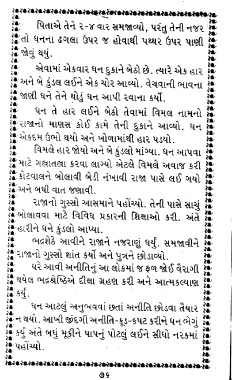 પિતાએ તેને ૨-૪ વાર સમજાવ્યો, પરંતુ તેની નજર
તો ધનના ઢગલા ઉપર જ હોવાથી પથ્થર ઉપર પાણી
જેવું થયું.
એવામાં એકવાર ધન દુકાને બેઠો છે. ત્યારે એક હાર
અને બે કુંડલ લઈને એક ચોર આવ્યો. વેચવાની ભાવના
જાણી ધને તેને થોડું ધન આપી રવાના કર્યો.
ધન તે હાર લઈને બેઠો તેવામાં વિમલ નામનો
રાજાનો માણસ કોઈ કામે તેની દુકાને આવ્યો. ધન
એકદમ ઉભો થયો અને ખોળામાંથી હાર પડયો.
વિમલે હાર જોયો અને બે કુંડલો માંગ્યા. ધન આપવા
માટે ગલ્લાતલ્લા કરવા લાગ્યો એટલે વિમલે અવાજ કરી
કોટવાલને બોલાવી બેડી નંખાવી રાજા પાસે લઈ ગયો
અને બધી વાત જણાવી.
રાજાનો ગુસ્સો આસમાને પહોંચ્યો. તેની પાસે સાચું
બોલાવવા માટે વિવિધ પ્રકારની શિક્ષાઓ કરી. અંતે
હારીને ધને કુંડલો આપ્યા.
ભદ્રશેઠે આવીને રાજાને નજરાણું ધર્યું. સમજાવીને
રાજાનો ગુસ્સો શાંત કર્યો અને પુત્રને છોડાવ્યો.
ઘરે આવી અનીતિનું આ લોકમાં જ ફળ જોઈ વૈરાગી
થયેલ ભદ્રશ્રેષ્ઠિએ દીક્ષા ગ્રહણ કરી અને આત્મકલ્યાણ
કર્યું.
ધન આટલું અનુભવવા છતાં અનીતિ છોડવા તૈયાર
ન થયો. આખી જીંદગી અનીતિ-કૂડ-કપટ કરીને ધન ભેગું
કર્યું અંતે બધું મૂકીને પાપનું પોટલું લઈને સીધો નરકમાં
પહોંચ્યો.